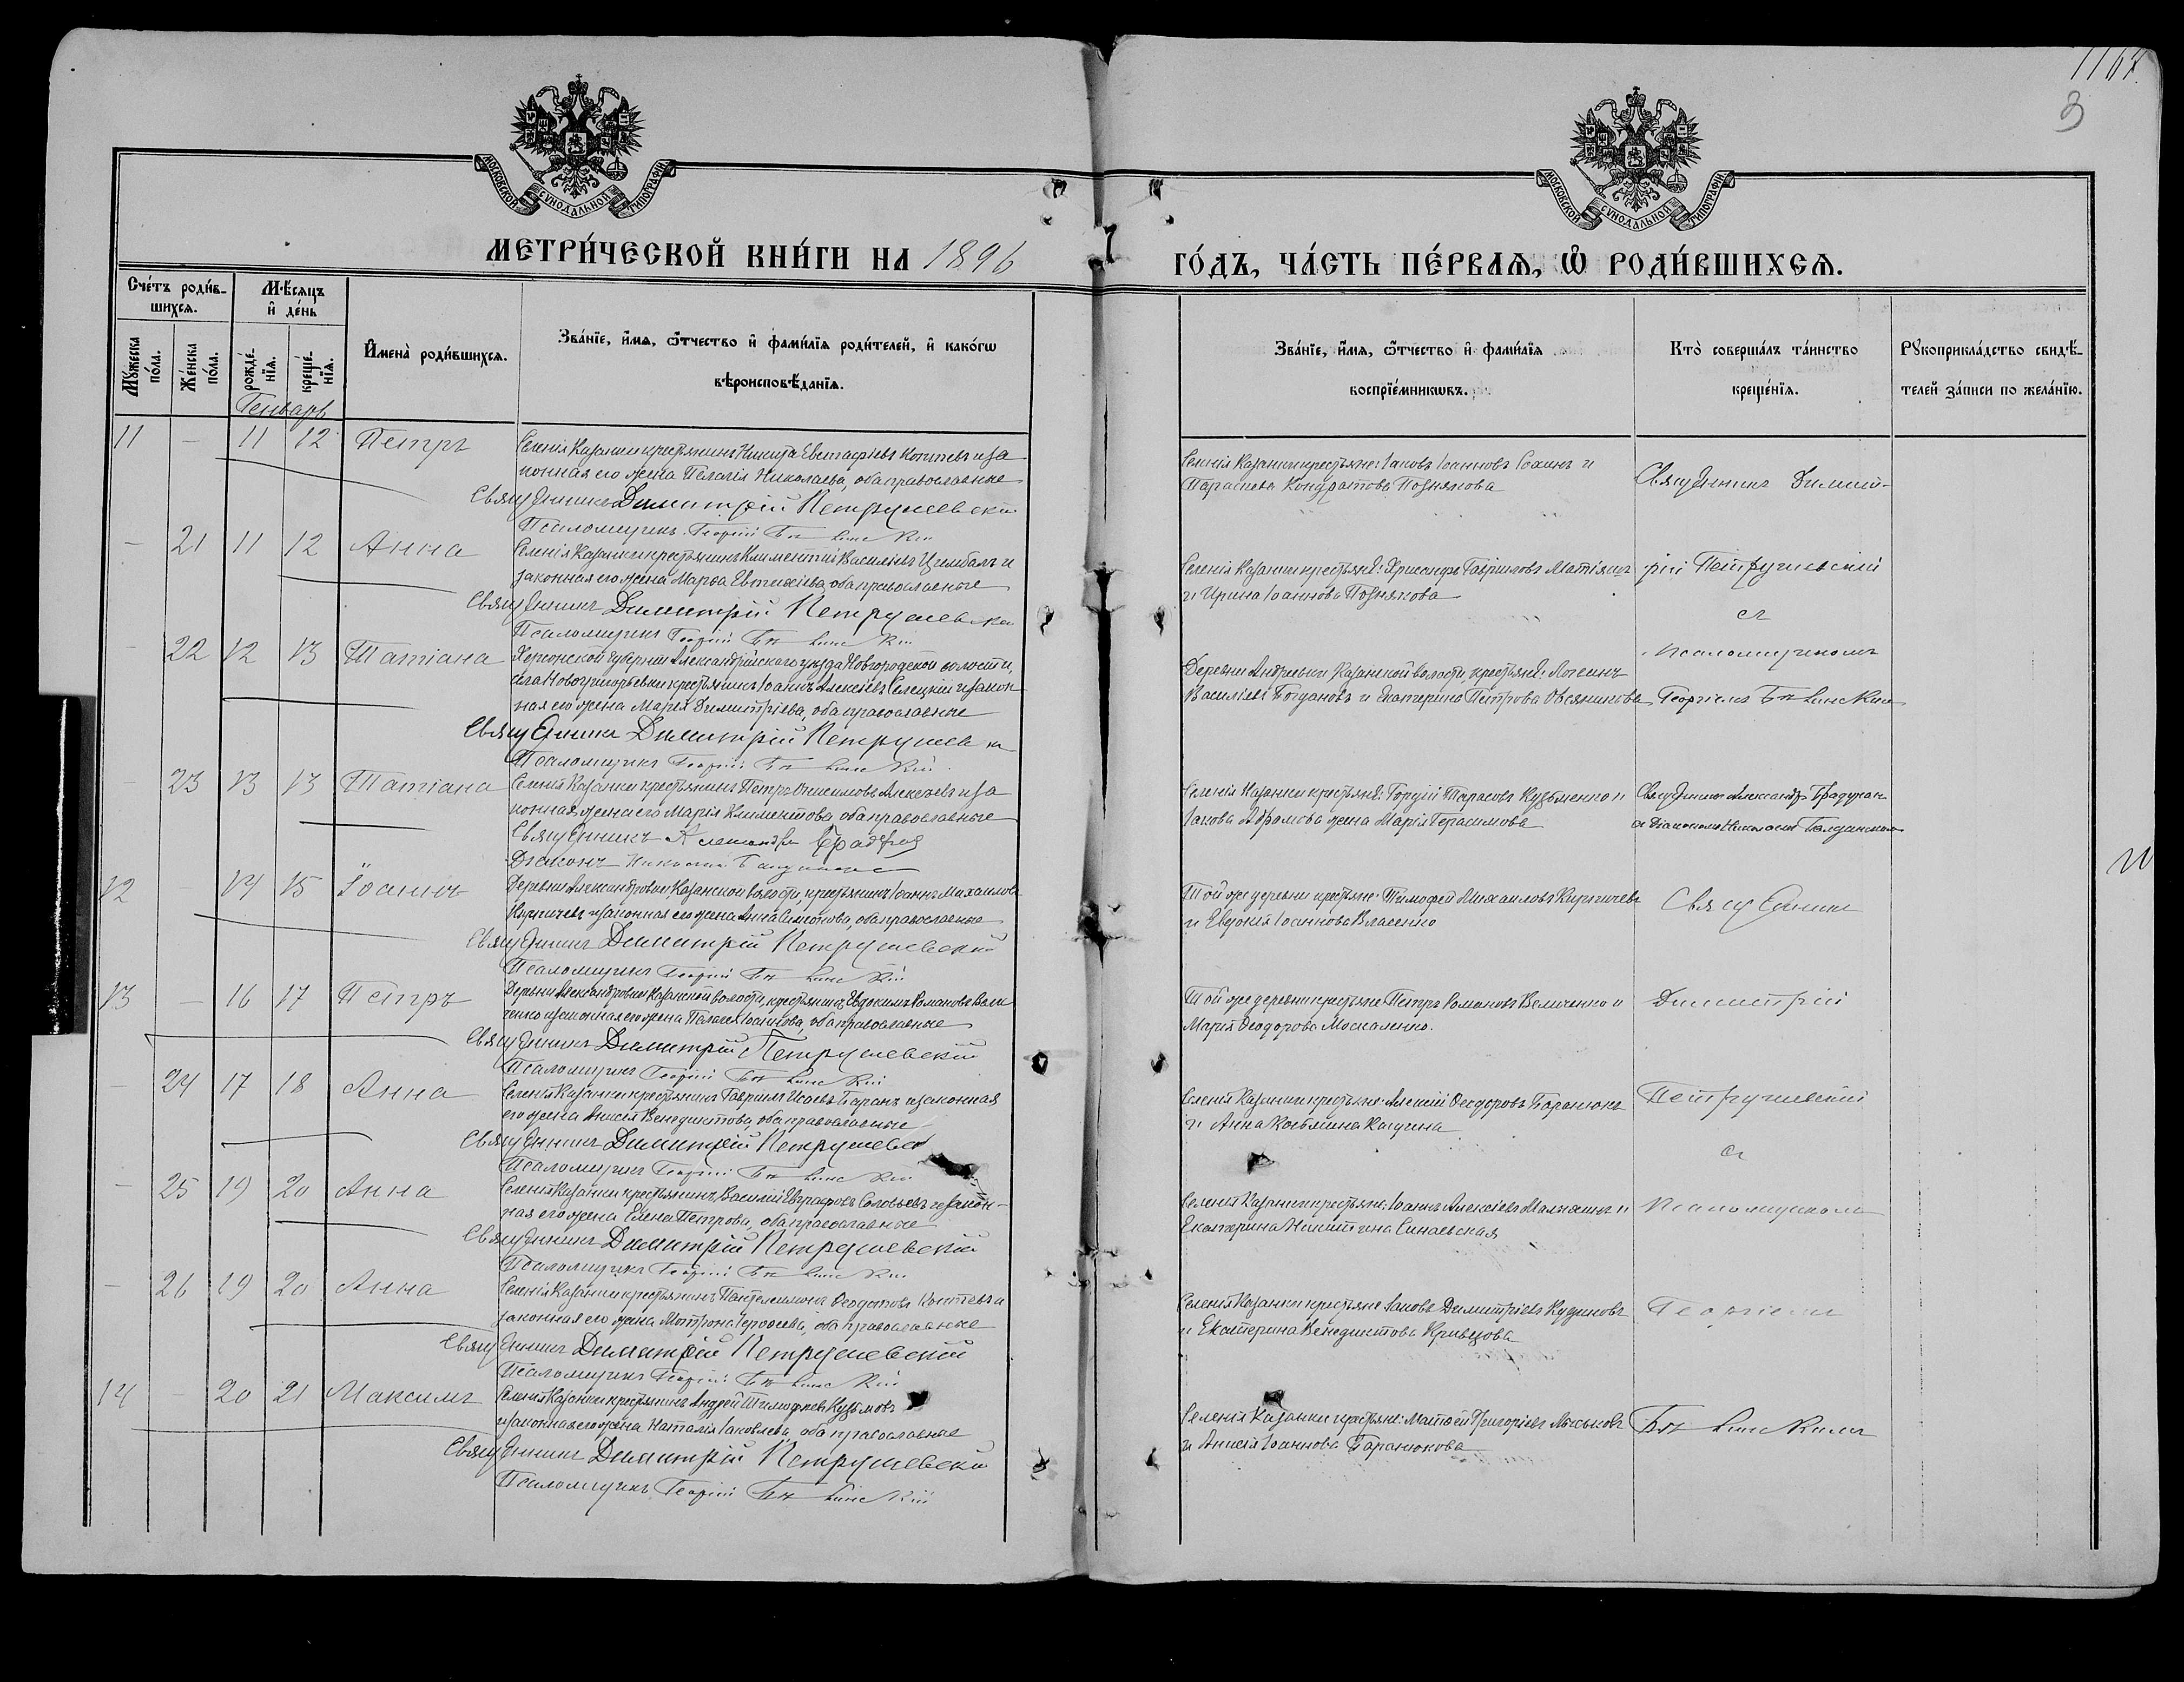 1167
3
МОСКОВСКОЙ СѴНОДАЛЬНОЙ ТИПОГРАФІИ
МОСКОВСКОЙ СѴНОДАЛЬНОЙ ТИПОГРАФІИ
МЕТРИ́ЧЕСКОЙ КНИ́ГИ НА 1896 ГО́ДЪ, ЧА́СТЬ ПЕ́РВАЯ, Ѡ РОДИ́ВШИХСЯ.
Сче́тъ роди́в-
шихся.
Мꙋ́жеска по́ла.
Же́нска по́ла.
Мѣ́сяцъ и де́нь
рожде́-нїя.
креще́-нїя.
Имена̀ роди́вшихся.
Зва́нїе, и́мя, ѻ҆́тчество и фами́лїя роди́телей, и како́гѡ
вѣроисповѣ́данїя.
Зва́нїе, и́мя, ѻ҆́тчество и фами́лїя
воспрїе́мникѡвъ.
Кто̀ соверша́лъ та́инство
креще́нїя.
Рꙋкоприкла́дство свидѣ́-
телей за́писи по жела́нїю.
Генварь
11 — 11 12 Петръ
Селенія Казанки крестьянинъ Никита Евстафіевъ и за
конная его жена Пелагія Николаева, оба православные
Священникъ Димитрій Петрушевскій
Псаломщикъ Георгій
Селенія Казанки крестьяне: Іаковъ Іоанновъ и
Параскева Кондратова Познякова
Священникъ Димит-
— 21 11 12 Анна
Селенія Казанки крестьянинъ Климентій Васильевъ Цимбалъ и
законная его жена Марѳа Евтихіева, оба православные
Священникъ Димитрій Петрушевскій
Псаломщикъ Георгій
Селенія Казанки крестьяне: Хрисанфъ Гавриловъ
и Ирина Іоаннова Познякова
рій Петрушевскій
съ
— 22 12 13 Татіана
Херсонской губерніи Александрійскаго уѣзда Новгородской волости,
села Новогригорьевки крестьянинъ Іоаннъ Алексіевъ Селецкій и закон
ная его жена Марія Димитріева, оба православные
Священникъ Димитрій Петрушевскій
Псаломщикъ Георгій
Деревни Андреевки Казанской волости, крестьяне: Логвинъ
Василіевъ Богдановъ и Екатерина Петрова Овсяникова
псаломщикомъ
Георгіемъ
— 23 13 13 Татіана
Селенія Казанки крестьянинъ Петръ Онисимовъ Алексѣевъ и за
конная жена его Марія Климентова оба православные
Священникъ Александръ
Діаконъ Николай
Селенія Казанки крестьяне: Гордій Тарасовъ Кузьменко и
Іакова Абрамова жена Марія Герасимова
Священникъ Александръ
съ діакономъ Николаемъ
12 — 14 15 Іоаннъ
Деревни Александровки, Казанской волости, крестьянинъ Іоаннъ Михаиловъ
Кирпичевъ и законная его жена Анна Симеонова, оба православные
Священникъ Димитрій Петрушевскій
Псаломщикъ Георгій
Той же деревни крестьяне: Тимофей Михаиловъ Кирпичевъ
и Евдокія Іоаннова Власенко
Священникъ
13 — 16 17 Петръ
Деревни Александровки Казанской волости, крестьянинъ Евдокимъ Романовъ Вели
ченко и законная его жена Пелагея Іоаннова, оба православные
Священникъ Димитрій Петрушевскій
Псаломщикъ Георгій
Той же деревни крестьяне Петръ Романовъ Величенко и
Марія Ѳеодорова Москаленко.
Димитрій
— 24 17 18 Анна
Селенія Казанки крестьянинъ Гавріилъ Исаевъ Баранъ и законная
его жена Анисія Венедиктова, оба православные
Священникъ Димитрій Петрушевскій
Псаломщикъ Георгій
Селенія Казанки крестьяне: Алексій Ѳеодоровъ Баранюкъ
и Анна Косьмина
Петрушевскій
съ
— 25 19 20 Анна
Селенія Казанки крестьянинъ Василій Евграфовъ Соловьевъ и закон-
ная его жена Елена Петрова, оба православные
Священникъ Димитрій Петрушевскій
Псаломщикъ Георгій
Селенія Казанки крестьяне: Іоаннъ Алексіевъ и
Екатерина Никитина Синаевская
Псаломщикомъ
— 26 19 20 Анна
Селенія Казанки крестьянинъ Пантелеимонъ и
законная его жена Матрона, оба православные
Священникъ Димитрій Петрушевскій
Псаломщикъ Георгій
Селенія Казанки крестьяне Іаковъ Димитріевъ
и Екатерина Венедиктова Кривцова
Георгіемъ
14 — 20 21 Максимъ
Селенія Казанки крестьянинъ Андрей Тимофеевъ Кузьмовъ
и законная его жена Наталія Іаковлева, оба православные
Священникъ Димитрій Петрушевскій
Псаломщикъ Георгій
Селенія Казанки крестьяне: Матѳей Григоріевъ
и Анисія Іоаннова Баранюкова